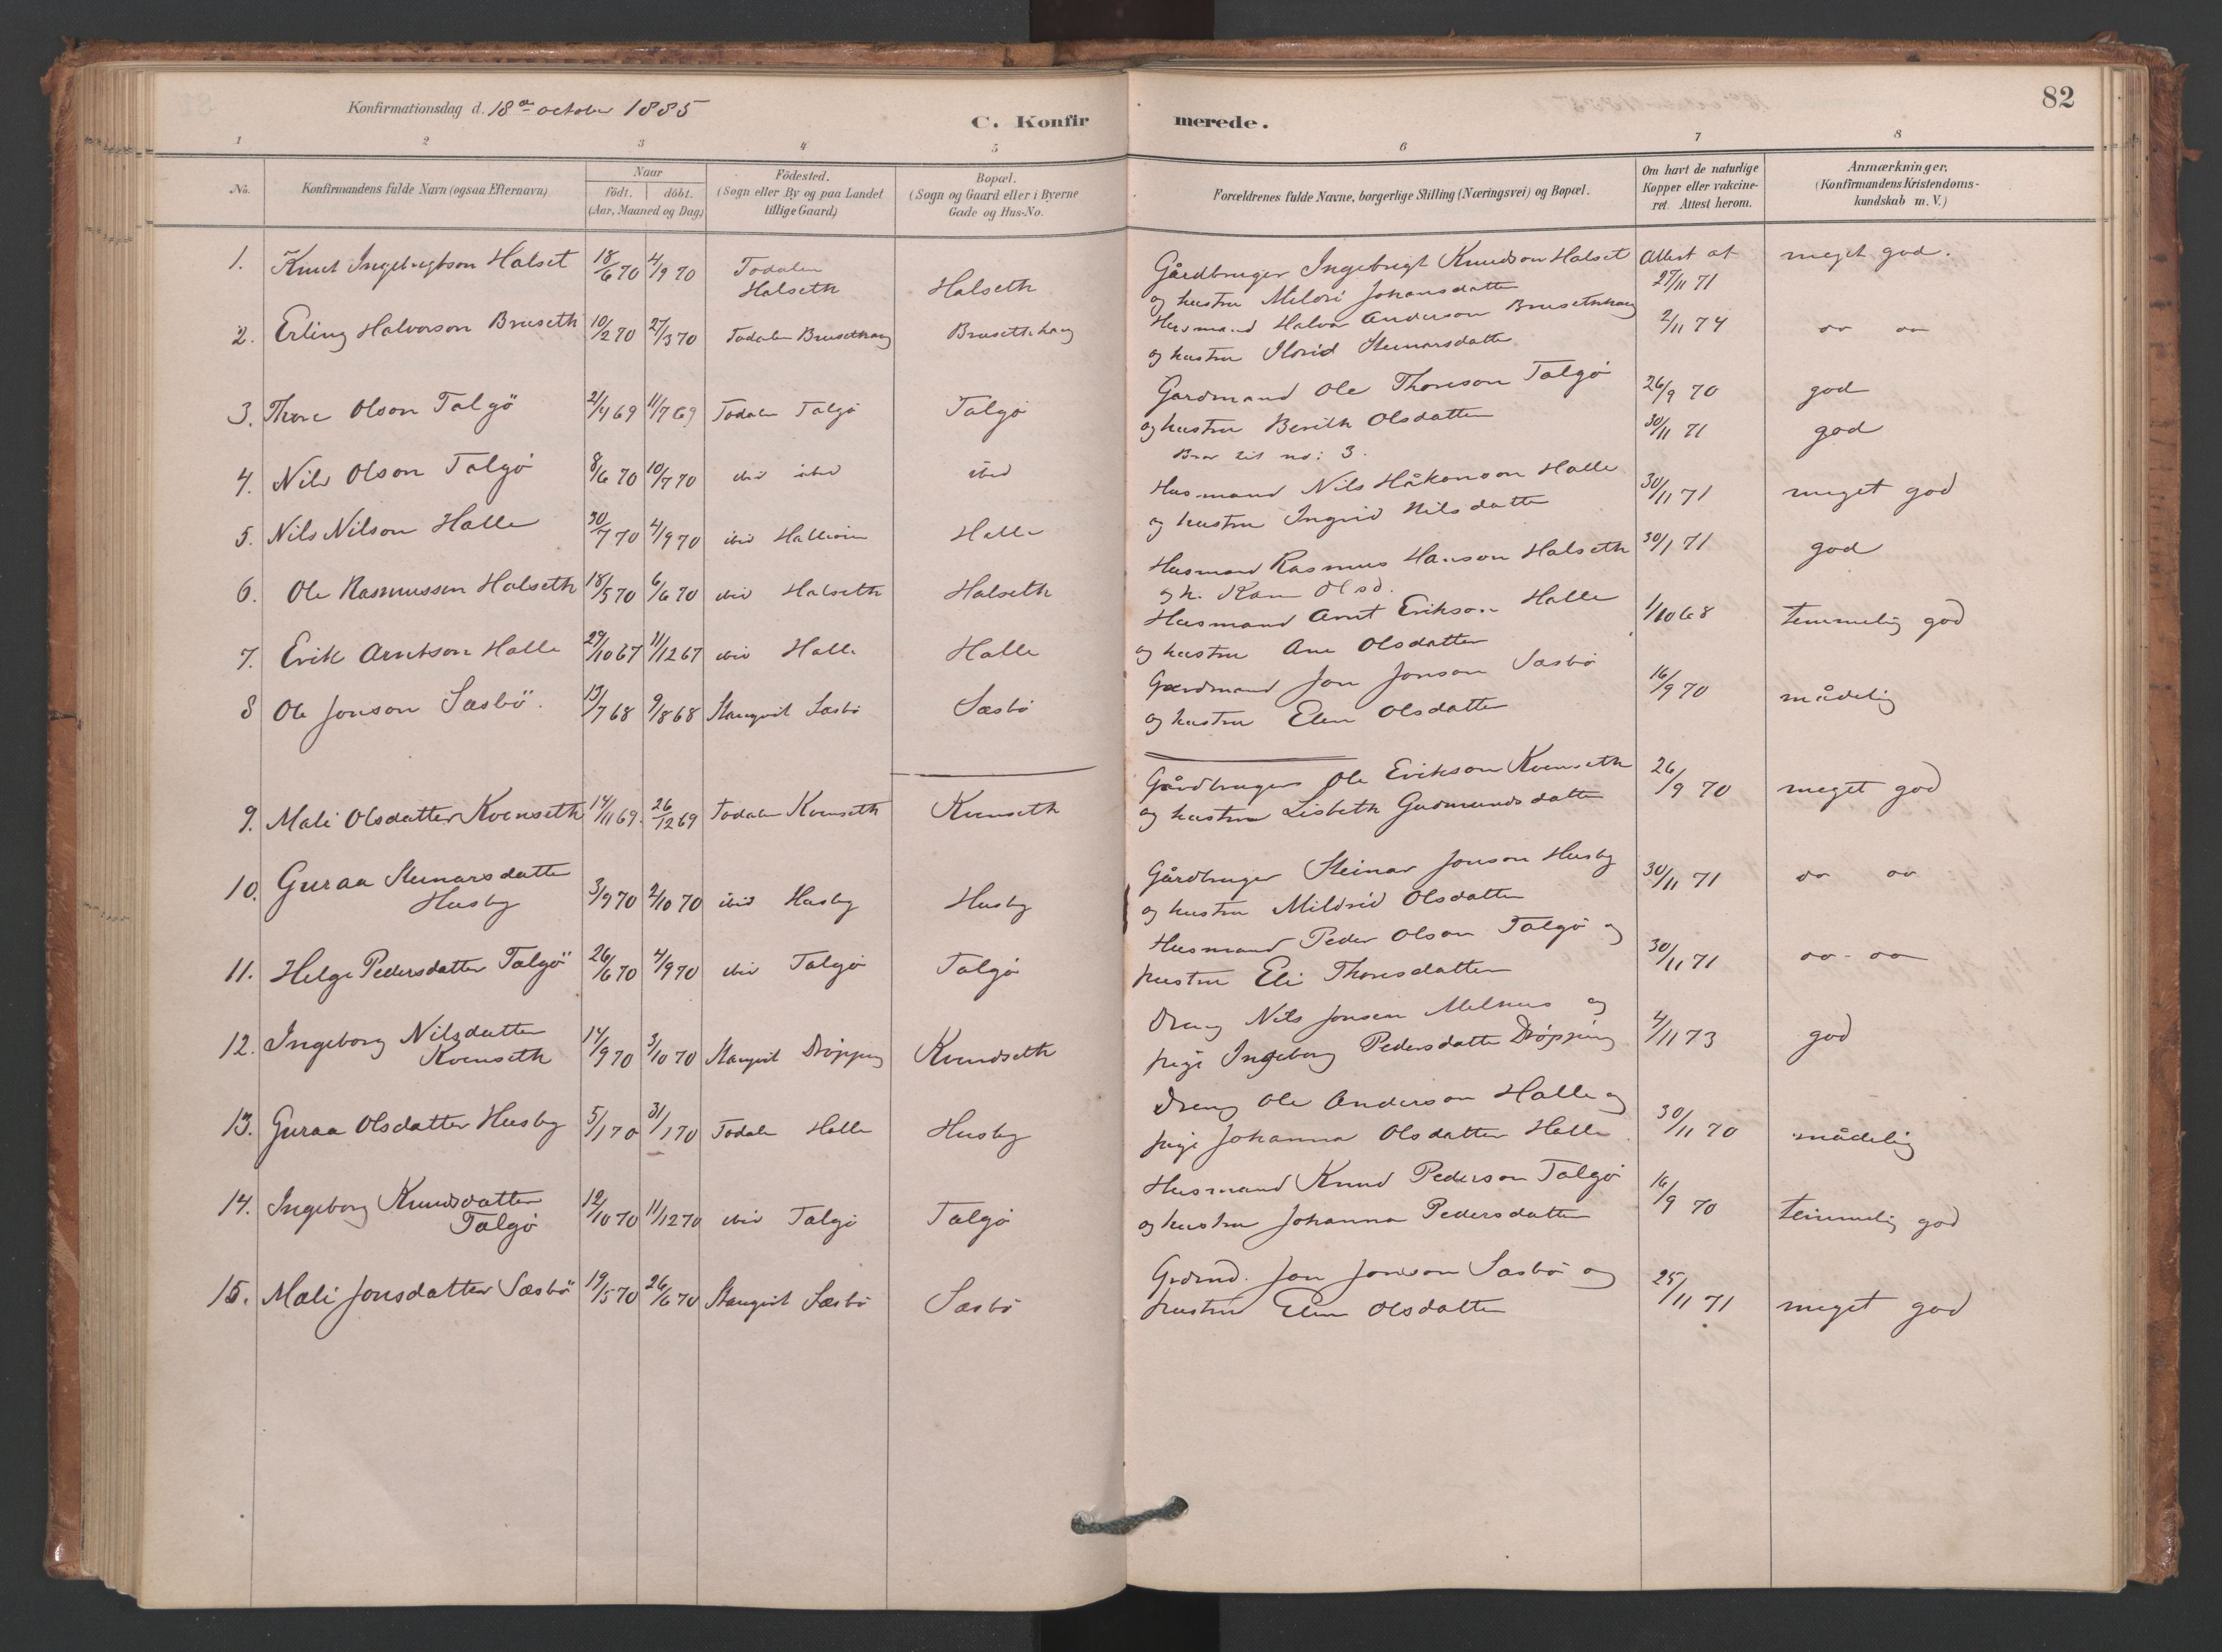 Konfirmationsdag d. 18de october 1885
C. Konfirmerede.
82
1 2 3 4 5 6 7 8
No.
Konfirmandens fulde Navn (ogsaa Efternavn)
Naar
födt. döbt.
(Aar, Maaned og Dag)
Födested.
(Sogn eller By og paa Landet
tillige Gaard)
Bopæl.
(Sogn og Gaard eller i Byerne
Gade og Hus-No.
Forældrenes fulde Navne, borgerlige Stilling (Næringsvei) og Bopæl.
Om havt de naturlige
Kopper eller vakcine-
ret. Attest herom.
Anmærkninger,
(Konfirmandens Kristendoms-
kundskab m. V.)
1. Knut Ingebrigtson Halset 18/6 70 4/9 70 Todalen Halseth Halseth
Gårdbruger Ingebrigt Knudson Halset
og hustru Johansdatter
Attest af 27/11 71 meget god.
2. Erling Halvorson Bruseth 10/2 70 27/3 70 Todalen Brusethaug Brusethhaug
Husmand Halvor Anderson Brusethhaug
og hustru Steinarsdatter
2/11 74 do do
3. Thore Olson Talgö 2/4 69 11/7 69 Todalen Talgö Talgö
Gardmand Ole Thoreson Talgö
og hustru Berith Olsdatter
26/9 70 god
4. Nils Olson Talgö 8/6 70 10/7 70 ibid ibid ibid
Bror til no: 3.
30/11 71 god
5. Nils Nilson Halle 30/7 70 4/9 70 ibid Halle
Husmand Nils Håkonson Halle
og hustru Ingrid Nilsdatter
30/11 71 meget god
6. Ole Rasmussen Halseth 18/5 70 6/6 70 ibid Halseth Halseth
Husmand Rasmus Hanson Halseth
og h. Kari Olsd.
30/1 71 god
7. Erik Arntson Halle 29/10 67 11/12 67 ibid Halle Halle
Husmand Arnt Erikson Halle
og hustru Ane Olsdatter
1/10 68 temmelig god
8 Ole Jonson Sæsbö. 13/7 68 9/8 68 Stangvik Sæsbö Sæsbö
Gardmand Jon Jonson Sæsbö
og hustru Elen Olsdatter
16/9 70 mådelig
9. Mali Olsdatter Kvenseth 14/11 69. 26/12 69 Todalen Kvenseth Kvenseth
Gårdbruger Ole Erikson Kvenseth
og hustru Lisbeth Gudmundsdatter
26/9 70 meget god
10. Guraa Steinarsdatter
Husby 3/9 70 2/10 70 ibid Husby Husby
Gårdbruger Steinar Jonson Husby
og hustru Mildrid Olsdatter
30/11 71 do do
11. Helge Pedersdatter Talgö 26/6 70 4/9 70 ibid Talgö Talgö
Husmand Peder Olson Talgö og
hustru Eli Thoresdatter
30/11 71 do - do
12. Ingeborg Nilsdatter
Kvenseth 14/9 70 3/10 70 Stangvik Dröpping Kvendseth
Dreng Nils Jonsen Melhus og
pige Ingeborg Pedersdatter Dröpping
4/11 73 god
13. Guraa Olsdatter Husby 5/1 70 31/1 70 Todalen Halle Husby
Dreng Ole Anderson Halle og
pige Johanna Olsdatter Halle
30/11 70 mådelig
14. Ingeborg Knudsdatter
Talgö 12/10 70 11/12 70 ibid Talgö Talgö
Husmand Knud Pederson Talgö
og hustru Johanna Pedersdatter
16/9 70 temmelig god
15. Mali Jonsdatter Sæsbö 19/5 70 26/6 70 Stangvik Sæsbö Sæsbö
Grdmd. Jon Jonson Sæsbö og
hustru Elen Olsdatter
25/11 71 meget god